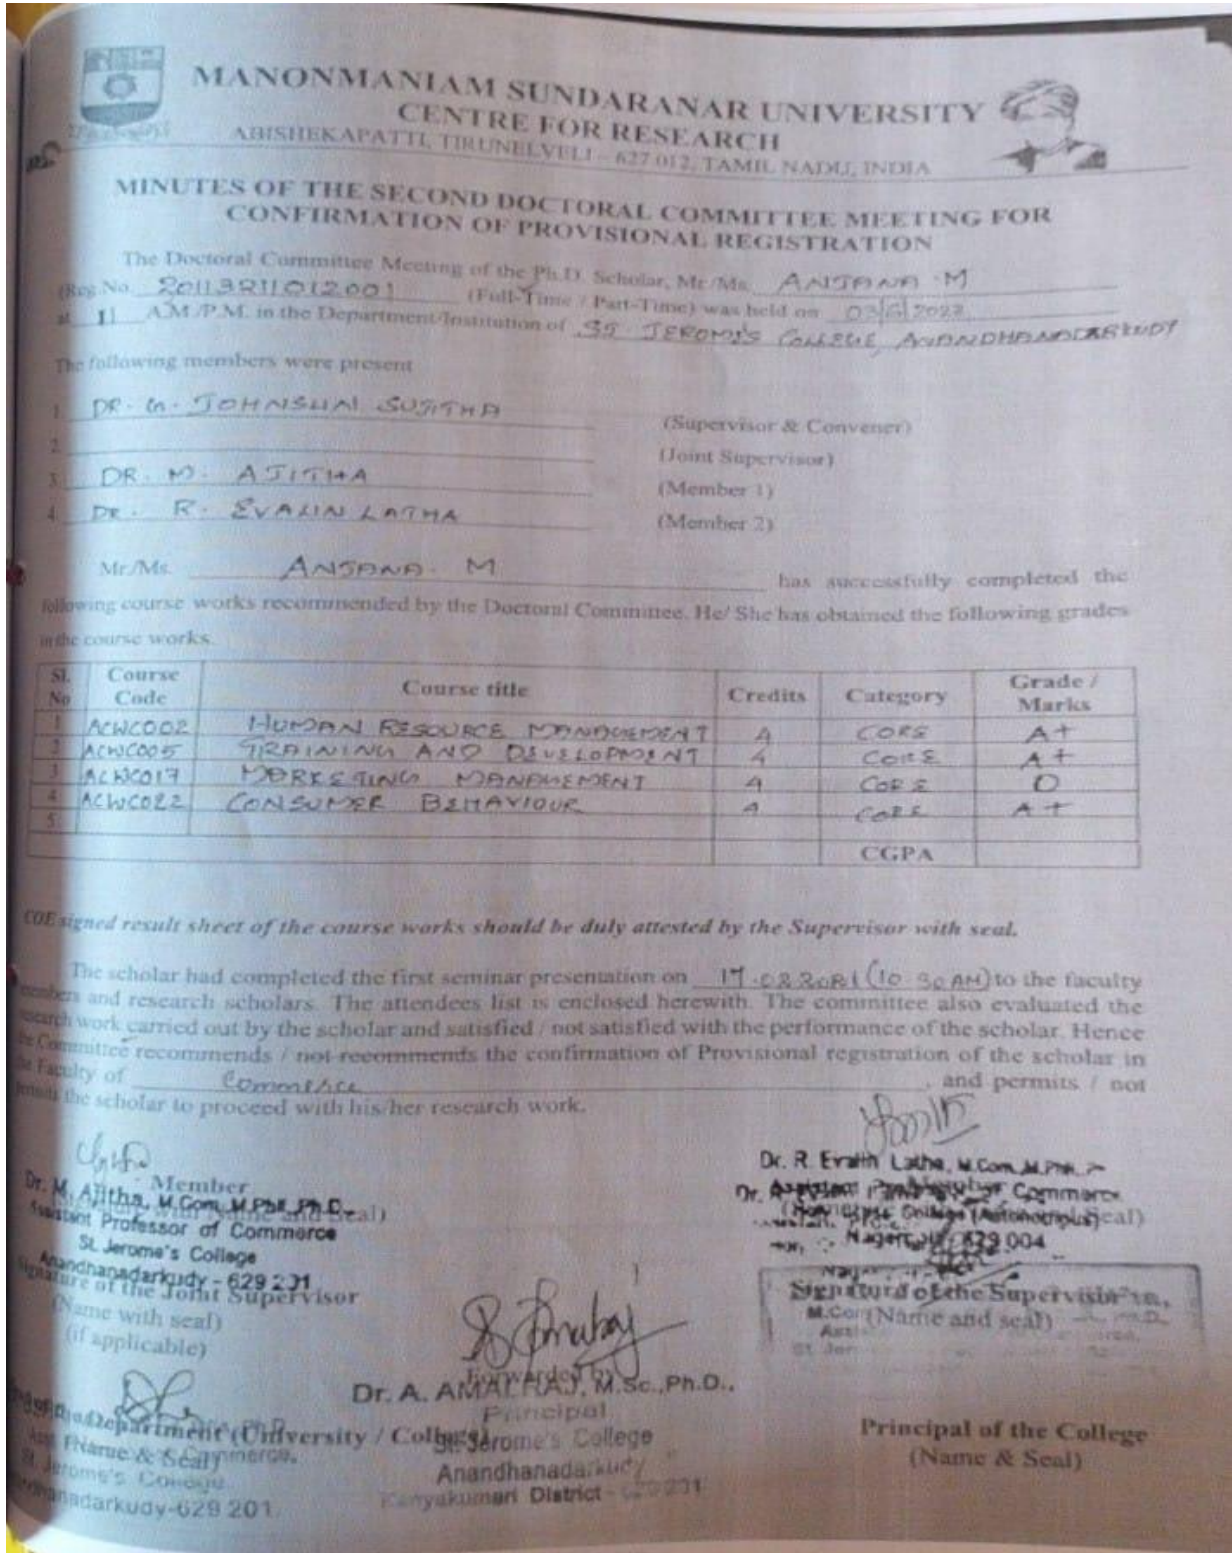 MANONMANIAM SUNDARANAR UNIVERSITY
CENTRE FOR RESEARCH
ABISHEKAPATTI, TIRUNELVELI – 627 012, TAMIL NADU, INDIA
MINUTES OF THE SECOND DOCTORAL COMMITTEE MEETING FOR
CONFIRMATION OF PROVISIONAL REGISTRATION
The Doctoral Committee Meeting of the Ph.D. Scholar, Mr/Ms. ANJANA M
(Reg.No. 20113211012001 (Full-Time / Part-Time) was held on 03/6/2022
at 11 A.M./P.M. in the Department/Institution of ST JEROME'S COLLEGE, ANANDHANADARKUDY
The following members were present
1. DR. G. JOHNSUN SUJITHA (Supervisor & Convener)
2. (Joint Supervisor)
3. DR. M. AJITHA (Member 1)
4. DR. R. EVALIN LATHA (Member 2)
Mr/Ms. ANJANA. M has successfully completed the
following course works recommended by the Doctoral Committee. He/ She has obtained the following grades
in the course works.
Sl. No Course Code Course title Credits Category Grade / Marks
1. ACWC002 HUMAN RESOURCE MANAGEMENT 4 CORE A+
2 ACWC005 TRAINING AND DEVELOPMENT 4 CORE A+
3 ACWC017 MARKETING MANAGEMENT 4 CORE O
4 ACWC022 CONSUMER BEHAVIOUR 4 CORE A+
5.
CGPA
COE signed result sheet of the course works should be duly attested by the Supervisor with seal.
The scholar had completed the first seminar presentation on (10.30 AM) to the faculty
members and research scholars. The attendees list is enclosed herewith. The committee also evaluated the
research work carried out by the scholar and satisfied / not satisfied with the performance of the scholar. Hence
the Committee recommends / not recommends the confirmation of Provisional registration of the scholar in
the Faculty of Commerce, and permits / not
permits the scholar to proceed with his/her research work.
Member
Dr. M. Ajitha, M.Com, M.Phil, Ph.D.,
and Seal)
Assistant Professor of Commerce
St. Jerome's College
Anandhanadarkudy - 629 201
Signature of the Joint Supervisor
(Name with seal)
(if applicable)
Dr. R. Evalin Latha, M.Com, M.Phil,
of Commerce
College (Autonomous)
Seal)
Nagercoil - 629 004
Signature of the Supervisor
(Name and seal)
Forwarded by
Dr. A. AMALRAJ, M.Sc.,Ph.D.,
Principal
St. Jerome's College
Anandhanadarkudy
Kanyakumari District - 629 201
Department (University / College)
(Name & Seal)
St. Jerome's College
Anandhanadarkudy-629 201.
Principal of the College
(Name & Seal)